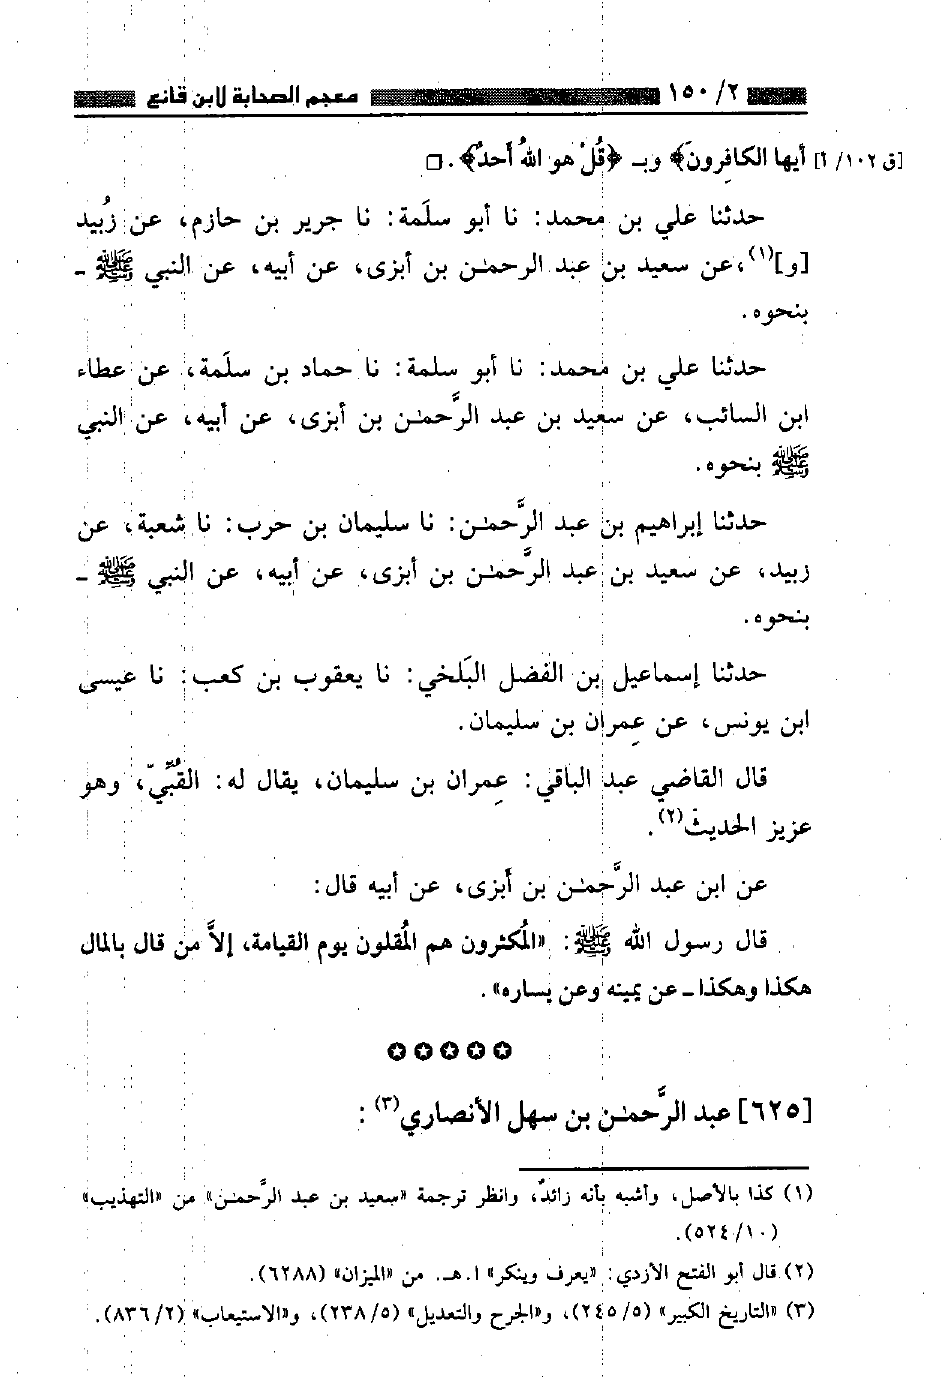 ٢/ ١٥٠ معجم الصحابة لابن قانع
[ق ١٠٢/ أ] أيها الكافِرونَ﴾ وبـ ﴿قُلْ هو اللهُ أَحدٌ﴾. □
حدثنا علي بن محمد: نا أبو سلَمة: نا جرير بن حازم، عن زُبيد
[و](١)، عن سعيد بن عبد الرحمـٰن بن أبزى، عن أبيه، عن النبي ﷺ ـ
بنحوه.
حدثنا علي بن محمد: نا أبو سلمة: نا حماد بن سلَمة، عن عطاء
ابن السائب، عن سعيد بن عبد الرَّحمـٰن بن أبزى، عن أبيه، عن النبي
ﷺ بنحوه.
حدثنا إبراهيم بن عبد الرَّحمـٰن: نا سليمان بن حرب: نا شعبة، عن
زبيد، عن سعيد بن عبد الرَّحمـٰن بن أبزى، عن أبيه، عن النبي ﷺ ـ
بنحوه.
حدثنا إسماعيل بن الفضل البَلخي: نا يعقوب بن كعب: نا عيسى
ابن يونس، عن عِمران بن سليمان.
قال القاضي عبد الباقي: عِمران بن سليمان، يقال له: القُبِّيّ، وهو
عزيز الحديث(٢).
عن ابن عبد الرَّحمـٰن بن أَبزى، عن أبيه قال:
قال رسول الله ﷺ: «المُكثرون هم المُقلون يوم القيامة، إلاَّ من قال بالمال
هكذا وهكذا ـ عن يمينه وعن يساره».
✪✪✪✪✪
[٦٢٥] عبد الرَّحمـٰن بن سهل الأنصاري(٣):
(١) كذا بالأصل، وأشبه بأنه زائدٌ، وانظر ترجمة «سعيد بن عبد الرَّحمـٰن» من «التهذيب»
(١٠/ ٥٢٤).
(٢) قال أبو الفتح الأزدي: «يعرف وينكر» ا.هـ. من «الميزان» (٦٢٨٨).
(٣) «التاريخ الكبير» (٥/ ٢٤٥)، و«الجرح والتعديل» (٥/ ٢٣٨)، و«الاستيعاب» (٢/ ٨٣٦).